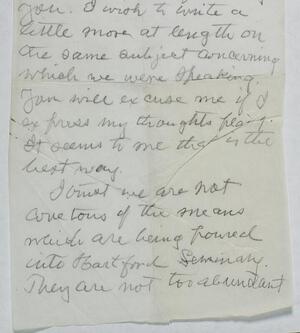 you. I wish to write a
little more at length on
the same subject concerning
which we were speaking.
You will excuse me if I
express my thoughts plainly.
It seems to me that is the
best way.
I trust we are not
covetous of the means
which are being poured
into Hartford Seminary
They are not too abundant